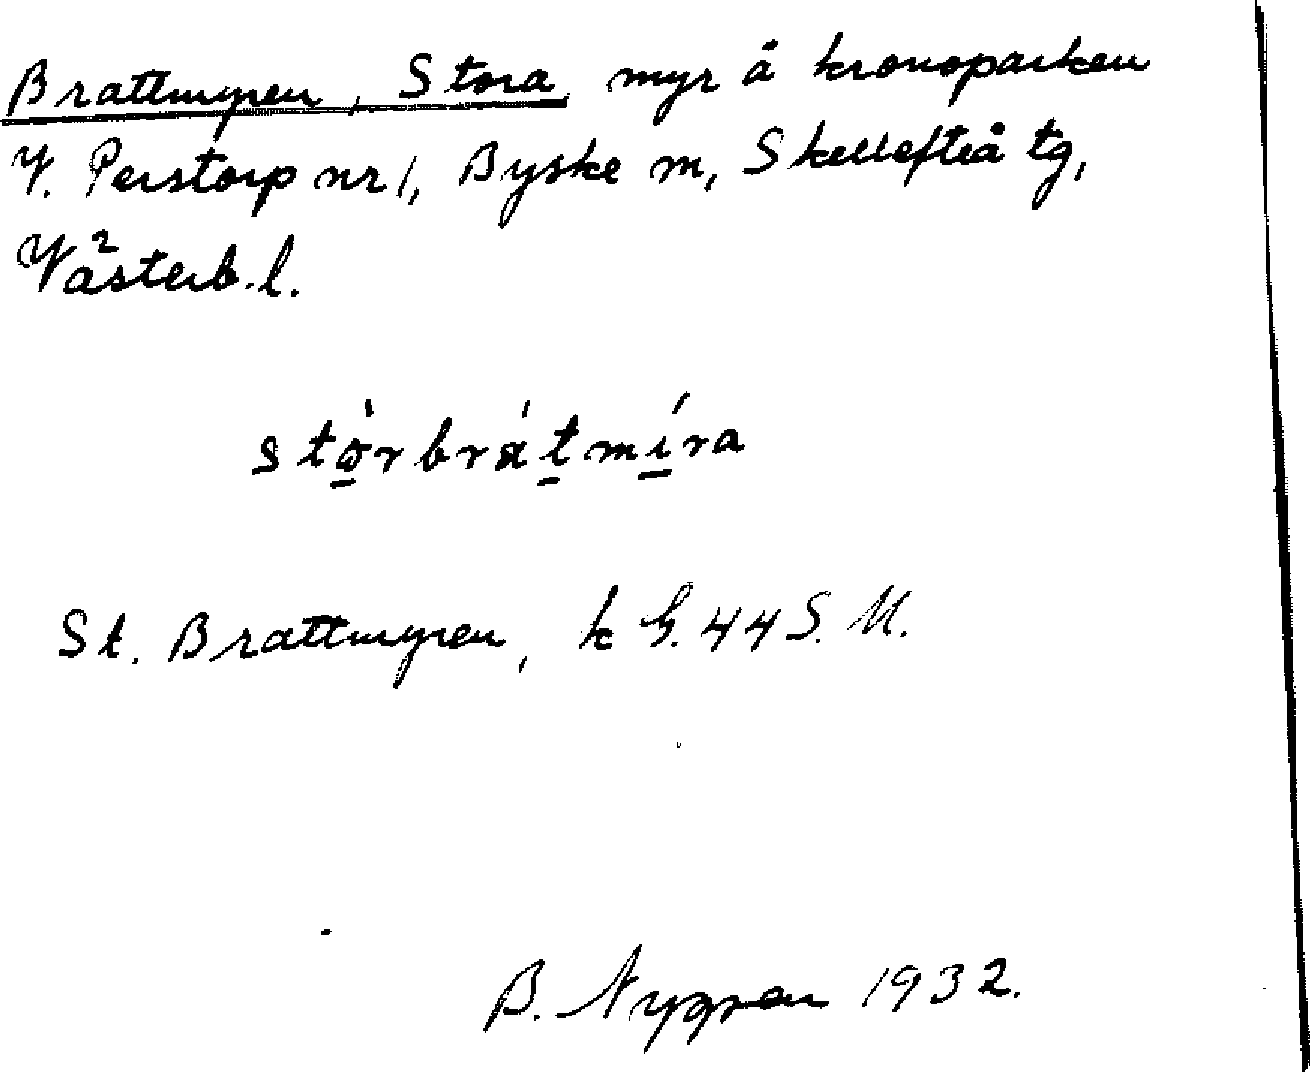 Brattmyren, Stora, myr å kronoparken
V. Perstorp nr 1, Byske sn, Skellefteå tg,
Västerb. l.
stòrbrátmíra
St. Brattmyren, k G. 44 S. U.
B. Nygren 1932.